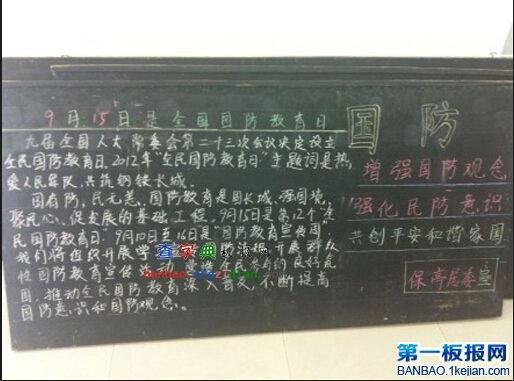 9月15日是全国国防教育日
九届全国人大常委会第二十三次会议决定设立
全民国防教育日。2012年"全民国防教育日"主题词是热
爱人民军队、共筑钢铁长城。
国有防,民无患,国防教育是固长城、强国境、
聚民心、促发展的基础工程。9月15日是第12个"全
民国防教育日"。9月10日至16日是"国防教育宣传周"
我们将组织开展学 开展群众
性国防教育宣传活动 全民 的良好氛
围,推动全民国防教育深入普及,不断提高
国防意识和国防观念。
国防
增强国防观念
强化民防意识
共创平安和谐家园
保亭居委宣
查字典板报网
banbao.chazidian
第一板报网
BANBAO.1kejian.com